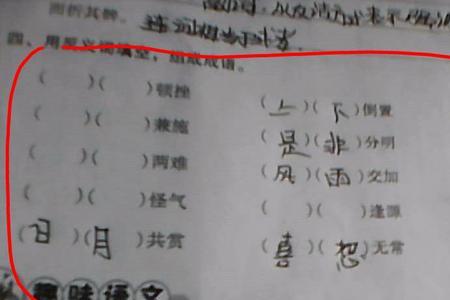 四、用反义词填空，组成成语。
(　)(　)顿挫 (上)(下)倒置
(　)(　)兼施 (是)(非)分明
(　)(　)两难 (风)(雨)交加
(　)(　)怪气 (　)(　)逢源
(日)(月)共赏 (喜)(怒)无常
趣味语文